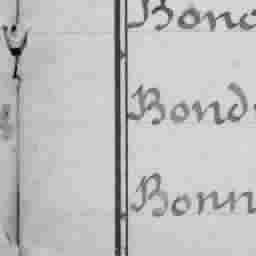 Bond
Bond
Bonn